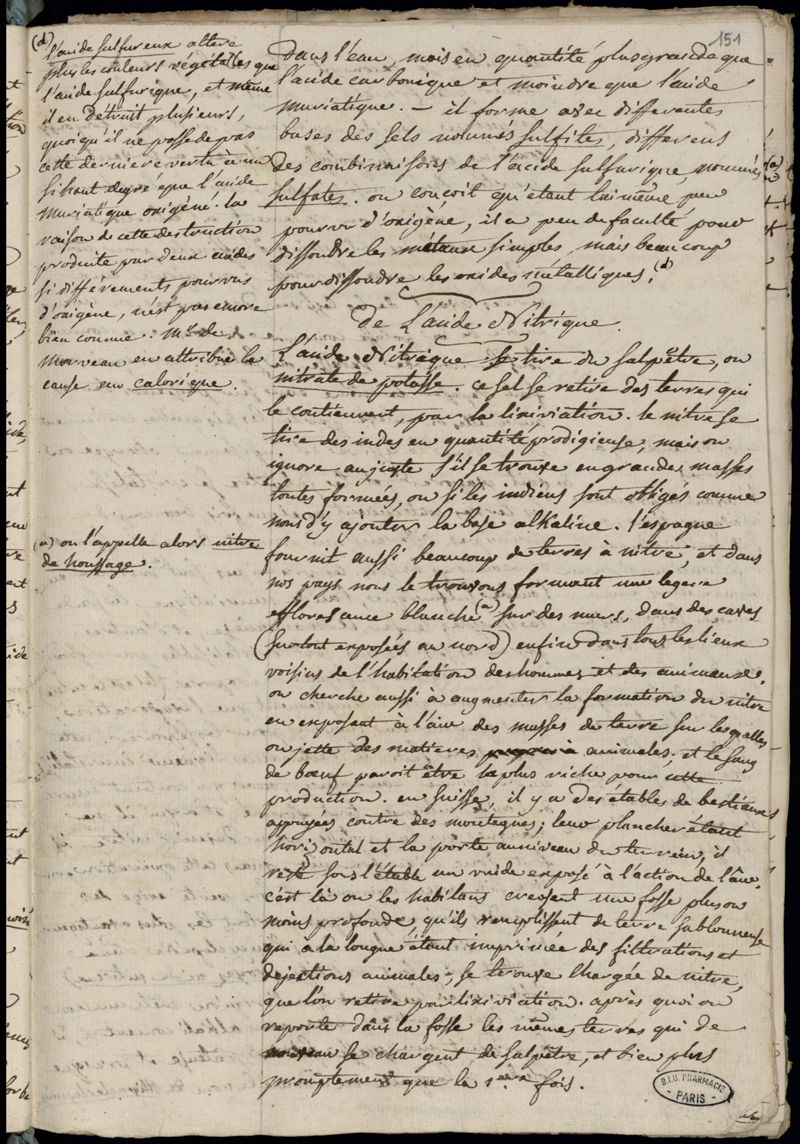 151
(d)
l'acide sulfureux altere
plus les couleurs végétales que
l'acide sulfurique, et même
il en détruit plusieurs,
quoiqu'il ne possede pas
cette derniere vertu à un
si haut degré que l'acide
muriatique oxigéné. la
raison de cette destruction
produite par deux acides
si différements pourvus
d'oxigène, n'est pas encore
bien connue : Mr. de
Morveau en attribue la
cause au calorique.
(a) on l'appelle alors nitre
de houssage.
dans l'eau, mais en quantité plus grande que
l'acide carbonique et moindre que l'acide
muriatique. – il forme avec differentes
bases des sels nommés sulfites, differens
des combinaisons de l'acide sulfurique, nommés
sulfates. on conçoit qu'étant lui même peu
pourvu d'oxigène, il a peu de faculté pour
dissoudre les métaux simples, mais beaucoup
pour dissoudre les oxides metalliques. (d)
De L'acide Nitrique.
L'acide Nitrique se tire du salpêtre, ou
nitrate de potasse. ce sel se retire des terres qui
le contiennent, par la lixiviation. le nitre se
tire des indes en quantité prodigieuse, mais on
ignore au juste s'il se trouve en grandes masses
toutes formées, ou si les indiens sont obligés comme
nous d'y ajouter la base alkaline. l'espagne
fournit aussi beaucoup de terres à nitre, et dans
nos pays nous le trouvons formant une legere
efflorescence blanche (a) sur des murs, dans des caves
(surtout exposées au nord) enfin dans tous les lieux
voisins de l'habitation des hommes et des animaux.
on cherche aussi à augmenter la formation du nitre
en exposant à l'air des masses de terre sur lesquelles
on jette des matieres animales; et le sang
de bœuf paroit être la plus riche pour cette
production. en suisse, il y a des étables de bestiaux
appuyées contre des montagnes; leur plancher étant
horizontal et la porte au niveau du terrein, il
reste sous l'étable un vuide exposé à l'action de l'air.
c'est là ou les habitans creusent une fosse plus ou
moins profonde, qu'ils remplissent de terre sablonneuse
qui à la longue étant imprimée des filtrations et
dejections animales, se trouve chargée de nitre,
que l'on retire par lixiviation. après quoi on
reporte dans la fosse les mêmes terres qui de
nouveau se chargent de salpêtre, et bien plus
promptement que la 1ere fois.
B.I.U. PHARMACIE
PARIS